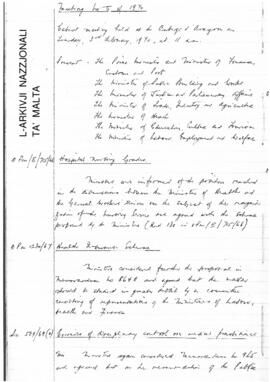 L-ARKIVJI NAZZJONALI
TA' MALTA
Meeting No 5 of 1970
Cabinet meeting held at the Auberge d'Aragon on
Tuesday, 3rd February, 1970, at 11 a.m.
Present - The Prime Minister and Minister of Finance,
Customs and Port
The Minister of Public Building and Works
The Minister of Justice and Parliamentary Affairs
The Minister of Trade, Industry and Agriculture
The Minister of Health
The Minister of Education, Culture and Tourism
The Minister of Labour, Employment and Welfare
Hospital Nursing Grades
Ministers were informed of the position reached
in the discussions between the Minister of Health and the
General Workers Union on the subject of the
of the Nursing and agreed with the
proposed by the Minister
Health Insurance Scheme
Ministers considered further the proposal in
Memorandum No and agreed that the matter
should be studied in greater detail by a committee
consisting of representatives of the Ministries of Labour,
Health and Finance
Exercise of disciplinary control on
The Ministers again considered Memorandum No 965
and agreed that on the recommendation of the Public